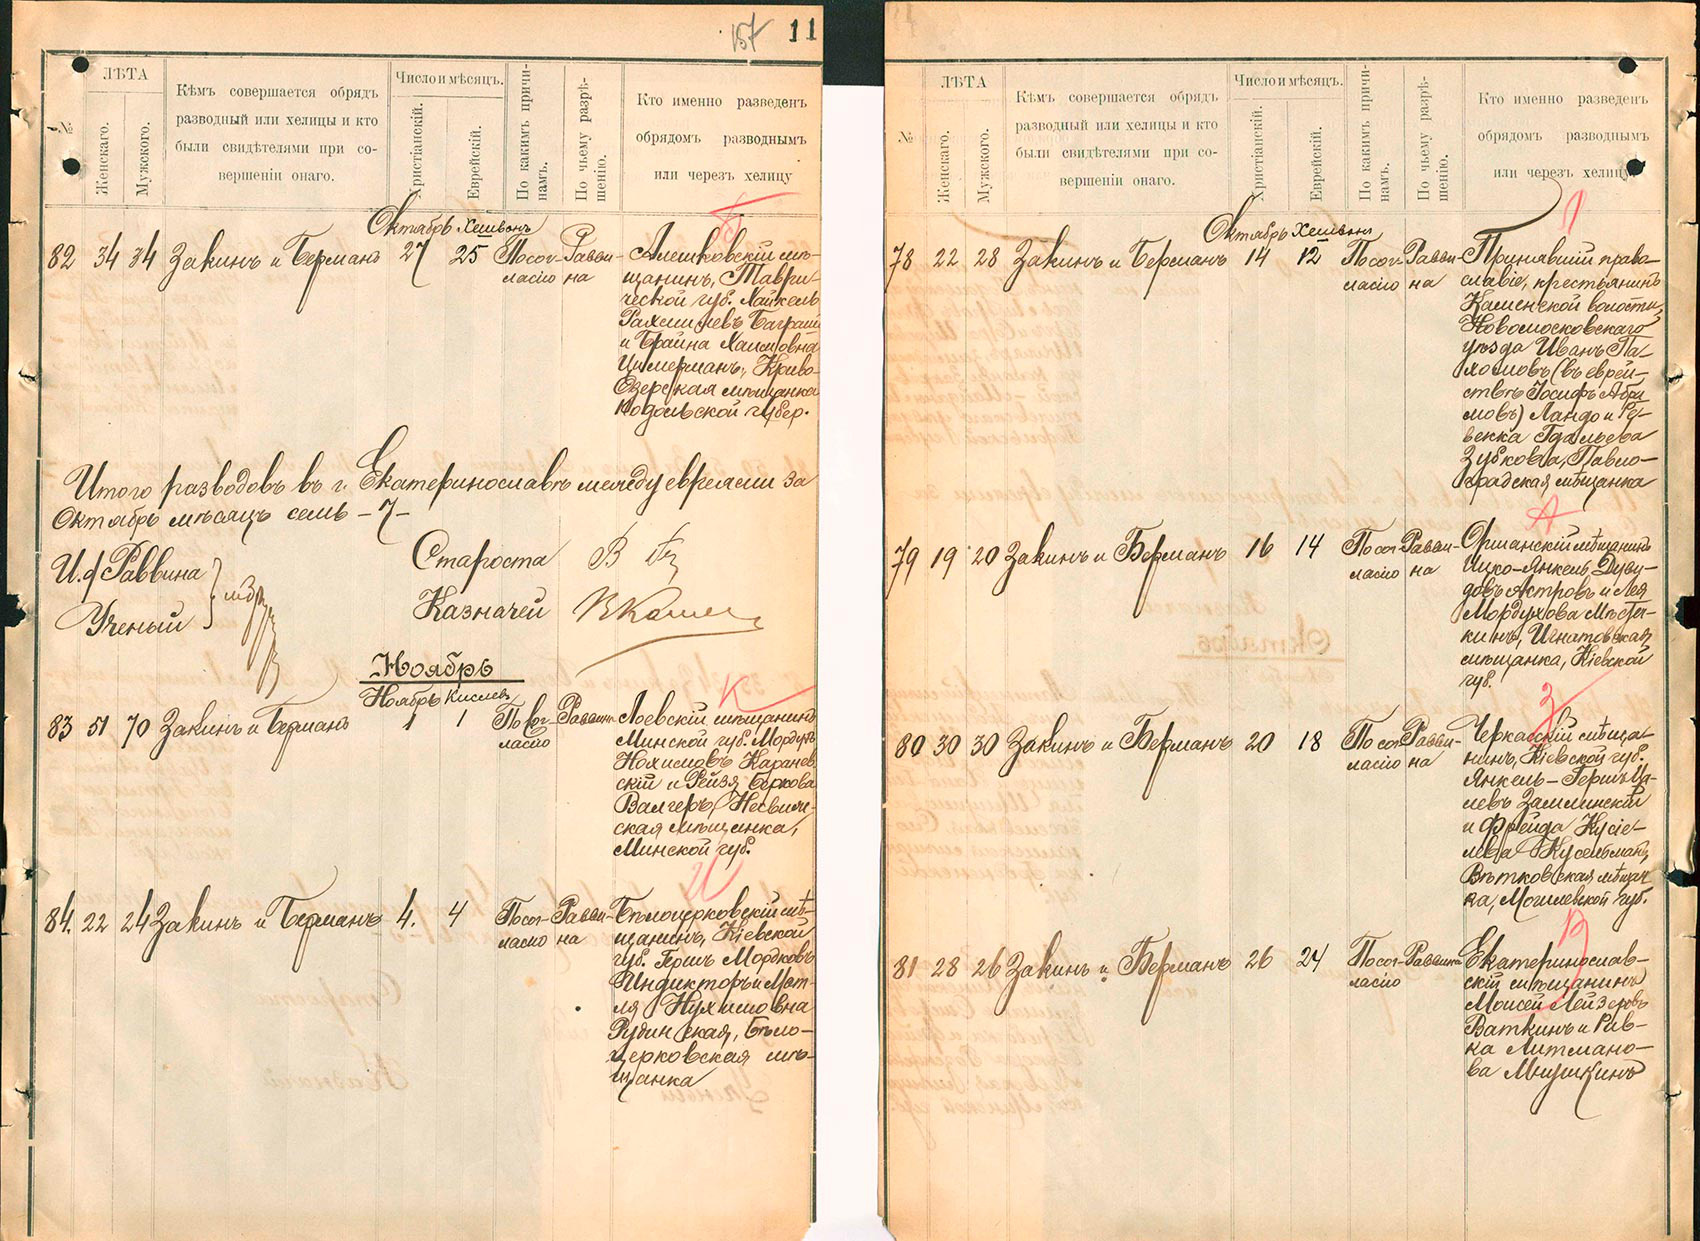 157 11
№
ЛѢТА
Женскаго.
Мужского.
Кѣмъ совершается обрядъ
разводный или хелицы и кто
были свидѣтелями при со-
вершеніи онаго.
Число и мѣсяцъ.
Христіанскій.
Еврейскій.
По какимъ причи-
намъ.
По чьему разрѣ-
шенію.
Кто именно разведенъ
обрядомъ разводнымъ
или черезъ хелицу
Б
Октябрь Хешвонъ
82 34 34 Закинъ и Берманъ 27 25 По сог- Равви-
ласію на
Алешковскій мѣ-
щанинъ, Таври-
ческой губ. Хайкель
Рахмилевъ
и Брайна Хаимовна
Цимерманъ, Криво-
Озерская мѣщанка
Подольской губер.
Итого разводовъ въ г. Екатеринославѣ между евреями за
Октябрь мѣсяцъ семь - 7 -
И. ф Раввина
Ученый
Староста
Казначей
Ноябрь
Ноябрь Кислевъ
К
83 51 70 Закинъ и Берманъ 1 1 По сог- Раввина
ласію
Лоевскій мѣщанинъ
Минской губ. Мордухъ
Нохимовъ Каранев
скій и Рейзя Беркова
Валгеръ, Несвиж-
ская мѣщанка,
Минской губ.
И
84. 22 24 Закинъ и Берманъ 4. 4 По сог- Равви-
ласію на
Бѣлоцерковскій мѣ-
щанинъ, Кіевской
губ. Гершъ Мордковъ
Индикторъ и Мот-
ля Нухимовна
Рудинская, Бѣло-
церковская мѣ-
щанка
№
ЛѢТА
Женскаго.
Мужского.
Кѣмъ совершается обрядъ
разводный или хелицы и кто
были свидѣтелями при со-
вершеніи онаго.
Число и мѣсяцъ.
Христіанскій.
Еврейскій.
По какимъ причи-
намъ.
По чьему разрѣ-
шенію.
Кто именно разведенъ
обрядомъ разводнымъ
или черезъ хелицу
Л
Октябрь Хешвонъ
78 22 28 Закинъ и Берманъ 14 12 По сог- Равви-
ласію на
Принявшій право-
славіе, крестьянинъ
Каменской волости,
Новомосковскаго
уѣзда Иванъ Па-
хомовъ (въ еврей-
ствѣ Іосифъ Абра
мовъ) Ландо и Ре-
векка Гдальева
Зубкова, Павло-
градская мѣщанка
А
79 19 20 Закинъ и Берманъ 16 14 По сог- Равви-
ласію на
Оршанскій мѣщанинъ
Ицко-Янкель Дуви-
довъ Астровъ и Лея
Мордухова
кинъ, Игнатовская
мѣщанка, Кіевской
губ.
З
80 30 30 Закинъ и Берманъ 20 18 По сог- Равви-
ласію на
Черкасскій мѣща-
нинъ, Кіевской губ.
Янкель-Гершъ Ца-
левъ Замлинскій
и Фрейда Кусіе-
лева Кусельманъ,
Вѣтковская мѣщан
ка, Могилевской губ.
В
81 28 26 Закинъ и Берманъ 26 24 По сог- Раввина
ласію
Екатеринослав-
скій мѣщанинъ
Моисей Лейзеровъ
Ваткинъ и Рив-
ка Литмано-
ва Мнушкинъ